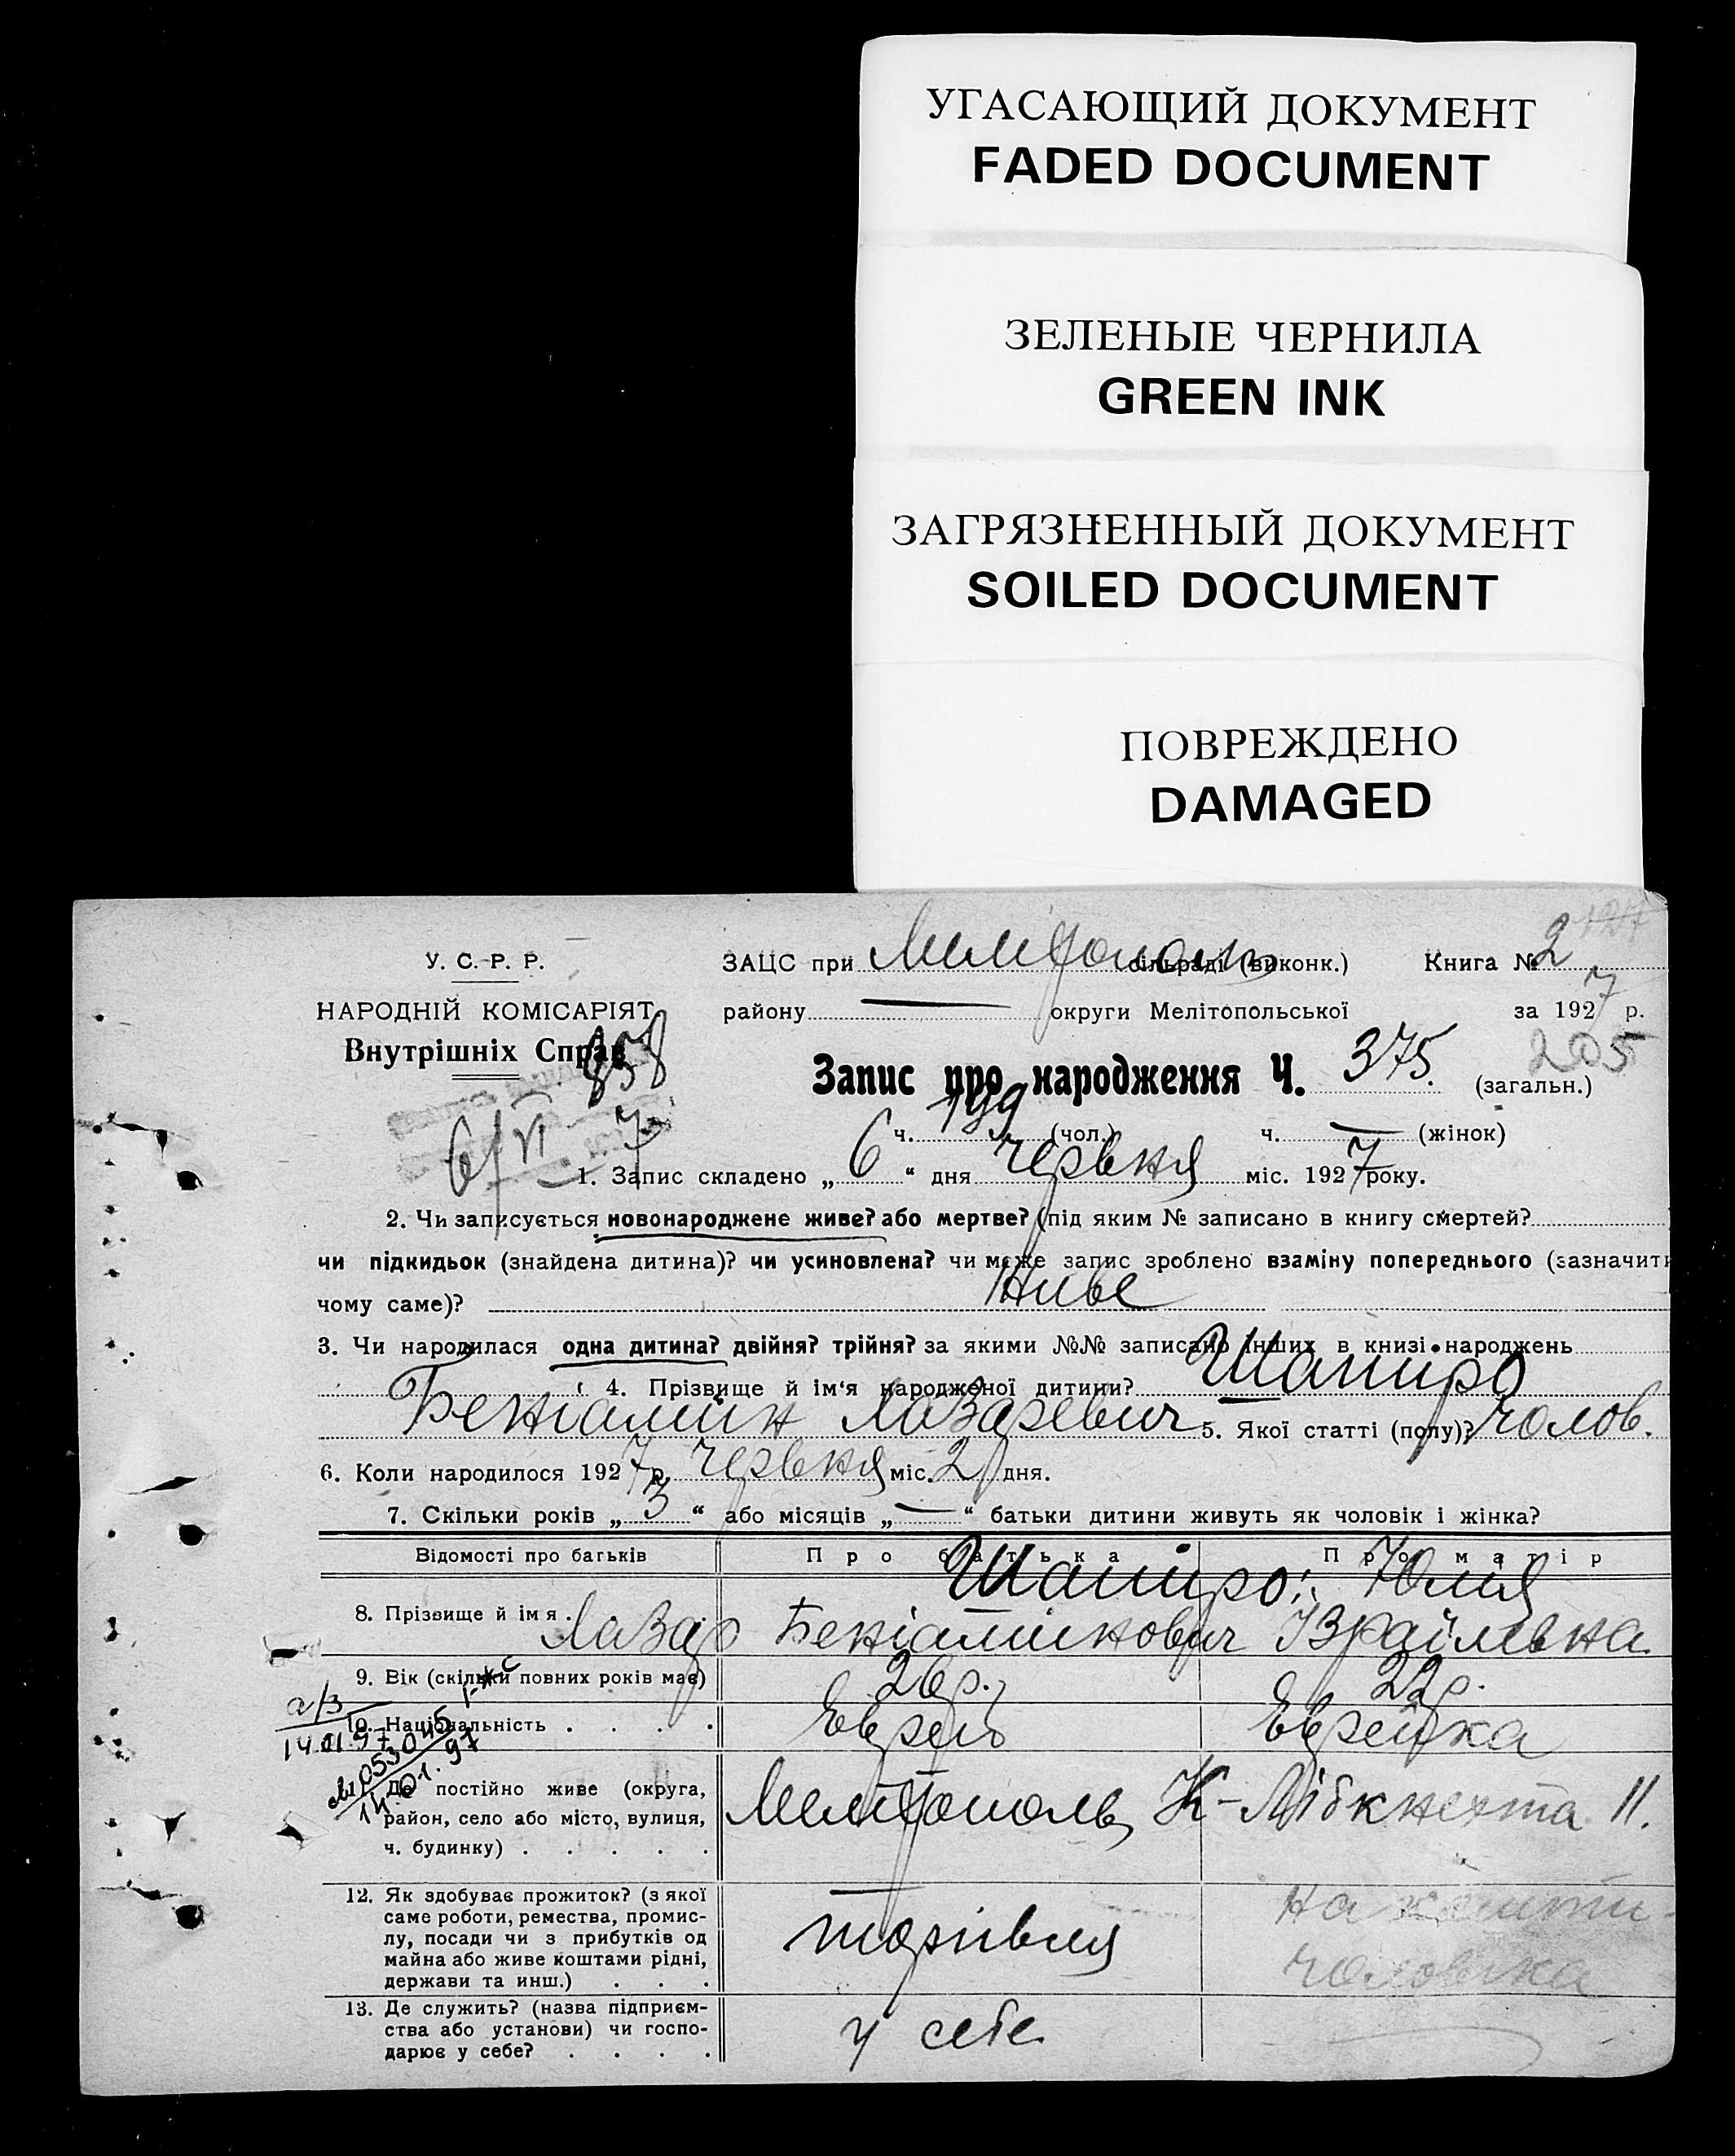 УГАСАЮЩИЙ ДОКУМЕНТ
FADED DOCUMENT
ЗЕЛЕНЫЕ ЧЕРНИЛА
GREEN INK
ЗАГРЯЗНЕННЫЙ ДОКУМЕНТ
SOILED DOCUMENT
ПОВРЕЖДЕНО
DAMAGED
У. С. Р. Р.
НАРОДНІЙ КОМІСАРІЯТ
Внутрішніх Справ
858
6/VI 7
ЗАЦС при сільраді (виконк.) Книга № 2
району — округи Мелітопольської за 1927 р.
205
Запис про народження Ч. 375. (загальн.)
ч. 199 (чол.) ч. — (жінок)
1. Запис складено „6“ дня червня міс. 1927 року.
2. Чи записується новонароджене живе? або мертве? (під яким № записано в книгу смертей?
чи підкидьок (знайдена дитина)? чи усиновлена? чи може запис зроблено взаміну попереднього (зазначити
чому саме)? живе
3. Чи народилася одна дитина? двійня? трійня? за якими №№ записано інших в книзі народжень
4. Прізвище й ім‘я народженої дитини? Шапиро
Беніамін Лазаревич 5. Якої статті (полу)? чолов.
6. Коли народилося 1927 р. червня міс. 2 дня.
7. Скільки років „3“ або місяців „—“ батьки дитини живуть як чоловік і жінка?
Відомості про батьків Про батька Про матір
Шапиро: Юлія
8. Прізвище й імя. Лазар Беніамінович Ізраїлевна
9. Вік (скільки повних років має) 26р. 22р.
10. Національність . . . . Еврей Еврейка
а/з
14.01.97
№053045
14.01.97
Де постійно живе (округа,
район, село або місто, вулиця,
ч. будинку) . . . . .
Мелітополь, К-Лібкнехта 11.
12. Як здобуває прожиток? (з якої
саме роботи, ремества, промис-
лу, посади чи з прибутків од
майна або живе коштами рідні,
держави та инш.) . . .
торгівля
на кошти
чоловіка
13. Де служить? (назва підприєм-
ства або установи) чи госпо-
дарює у себе? . . . .
у себе